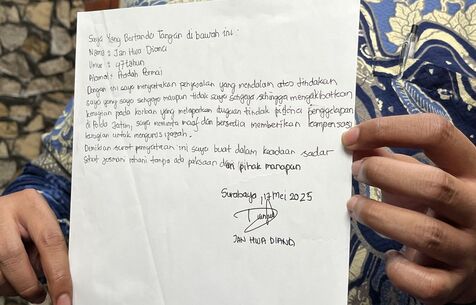 Saya Yang Bertanda Tangan dibawah ini :
Nama : Jan Hwa Diana
Umur : 47 tahun
Alamat : Pondah Permai
Dengan ini saya menyatakan penyesalan yang mendalam atas tindakan
saya yang saya sengaja maupun tidak saya sengaja sehingga mengakibatkan
kerugian pada korban yang melaporkan dugaan tindak pidana penggelapan
di Polda Jatim, saya meminta maaf dan bersedia memberikan kompensasi
kerugian untuk mengurus ijazah.
Demikian surat pernyataan ini saya buat dalam keadaan sadar
sehat jasmani rohani tanpa ada paksaan dari pihak manapun
Surabaya, 17 Mei 2025
JAN HWA DIANA